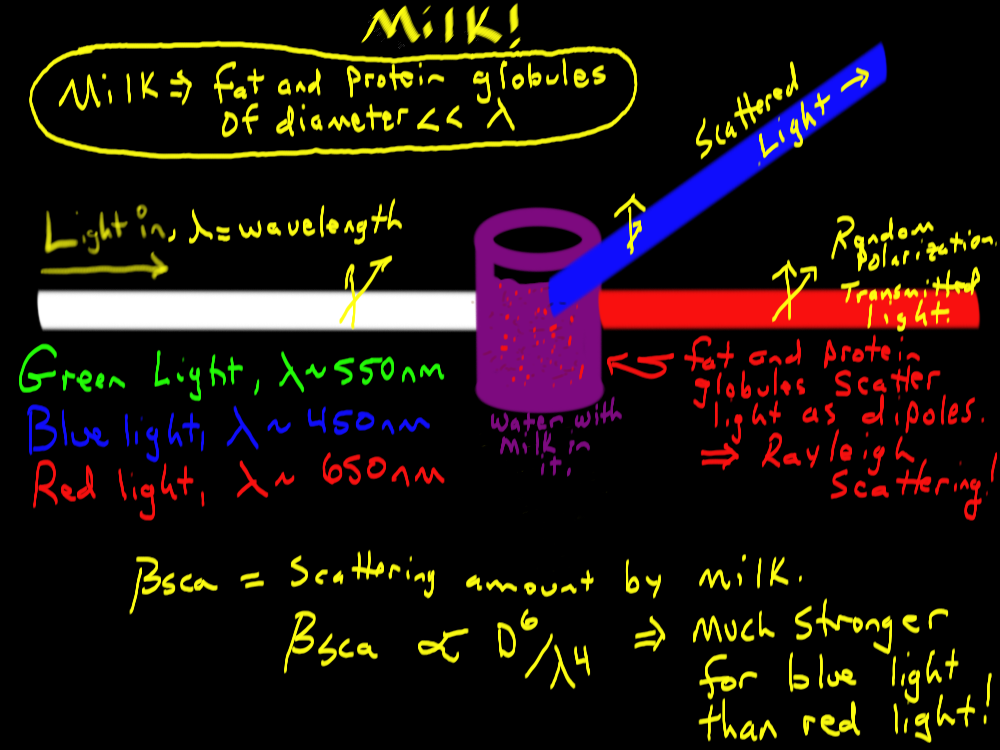 Milk!
Milk ⇒ fat and protein globules
of diameter << λ
Scattered
Light →
Light in, λ = wavelength
Random
Polarization.
Transmitted
light.
Green Light, λ ~ 550nm
Blue light, λ ~ 450nm
Red light, λ ~ 650nm
water with
Milk in
it.
fat and protein
globules scatter
light as dipoles.
⇒ Rayleigh
Scattering!
βsca = Scattering amount by milk.
βsca ∝ D⁶/λ⁴ ⇒ Much stronger
for blue light
than red light!